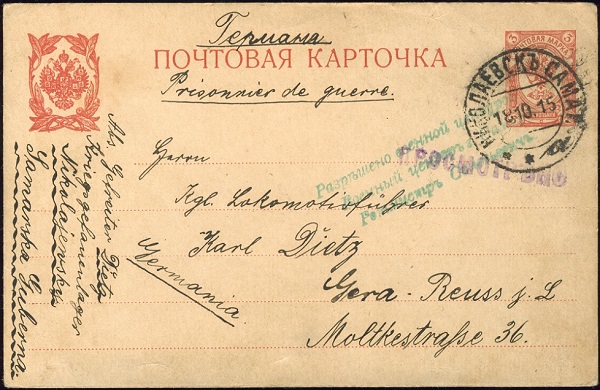 Германа
ПОЧТОВАЯ КАРТОЧКА
Prisonnier de guerre.
3
ПОЧТОВАЯ МАРКА
3
НИКОЛАЕВСКЪ САМАР.
18.10.15
Разрѣшено военной
Военный цензоръ
ПРОСМОТРѢНО
Herrn
Kgl. Lokomotivführer
Karl Dietz
Gera-Reuss j. L
Moltkestraße 36.
Germania.
Abs. Gefreiter Dietz
Kriegsgefangenenlager
Nikolajewsk
Samarska Guberna